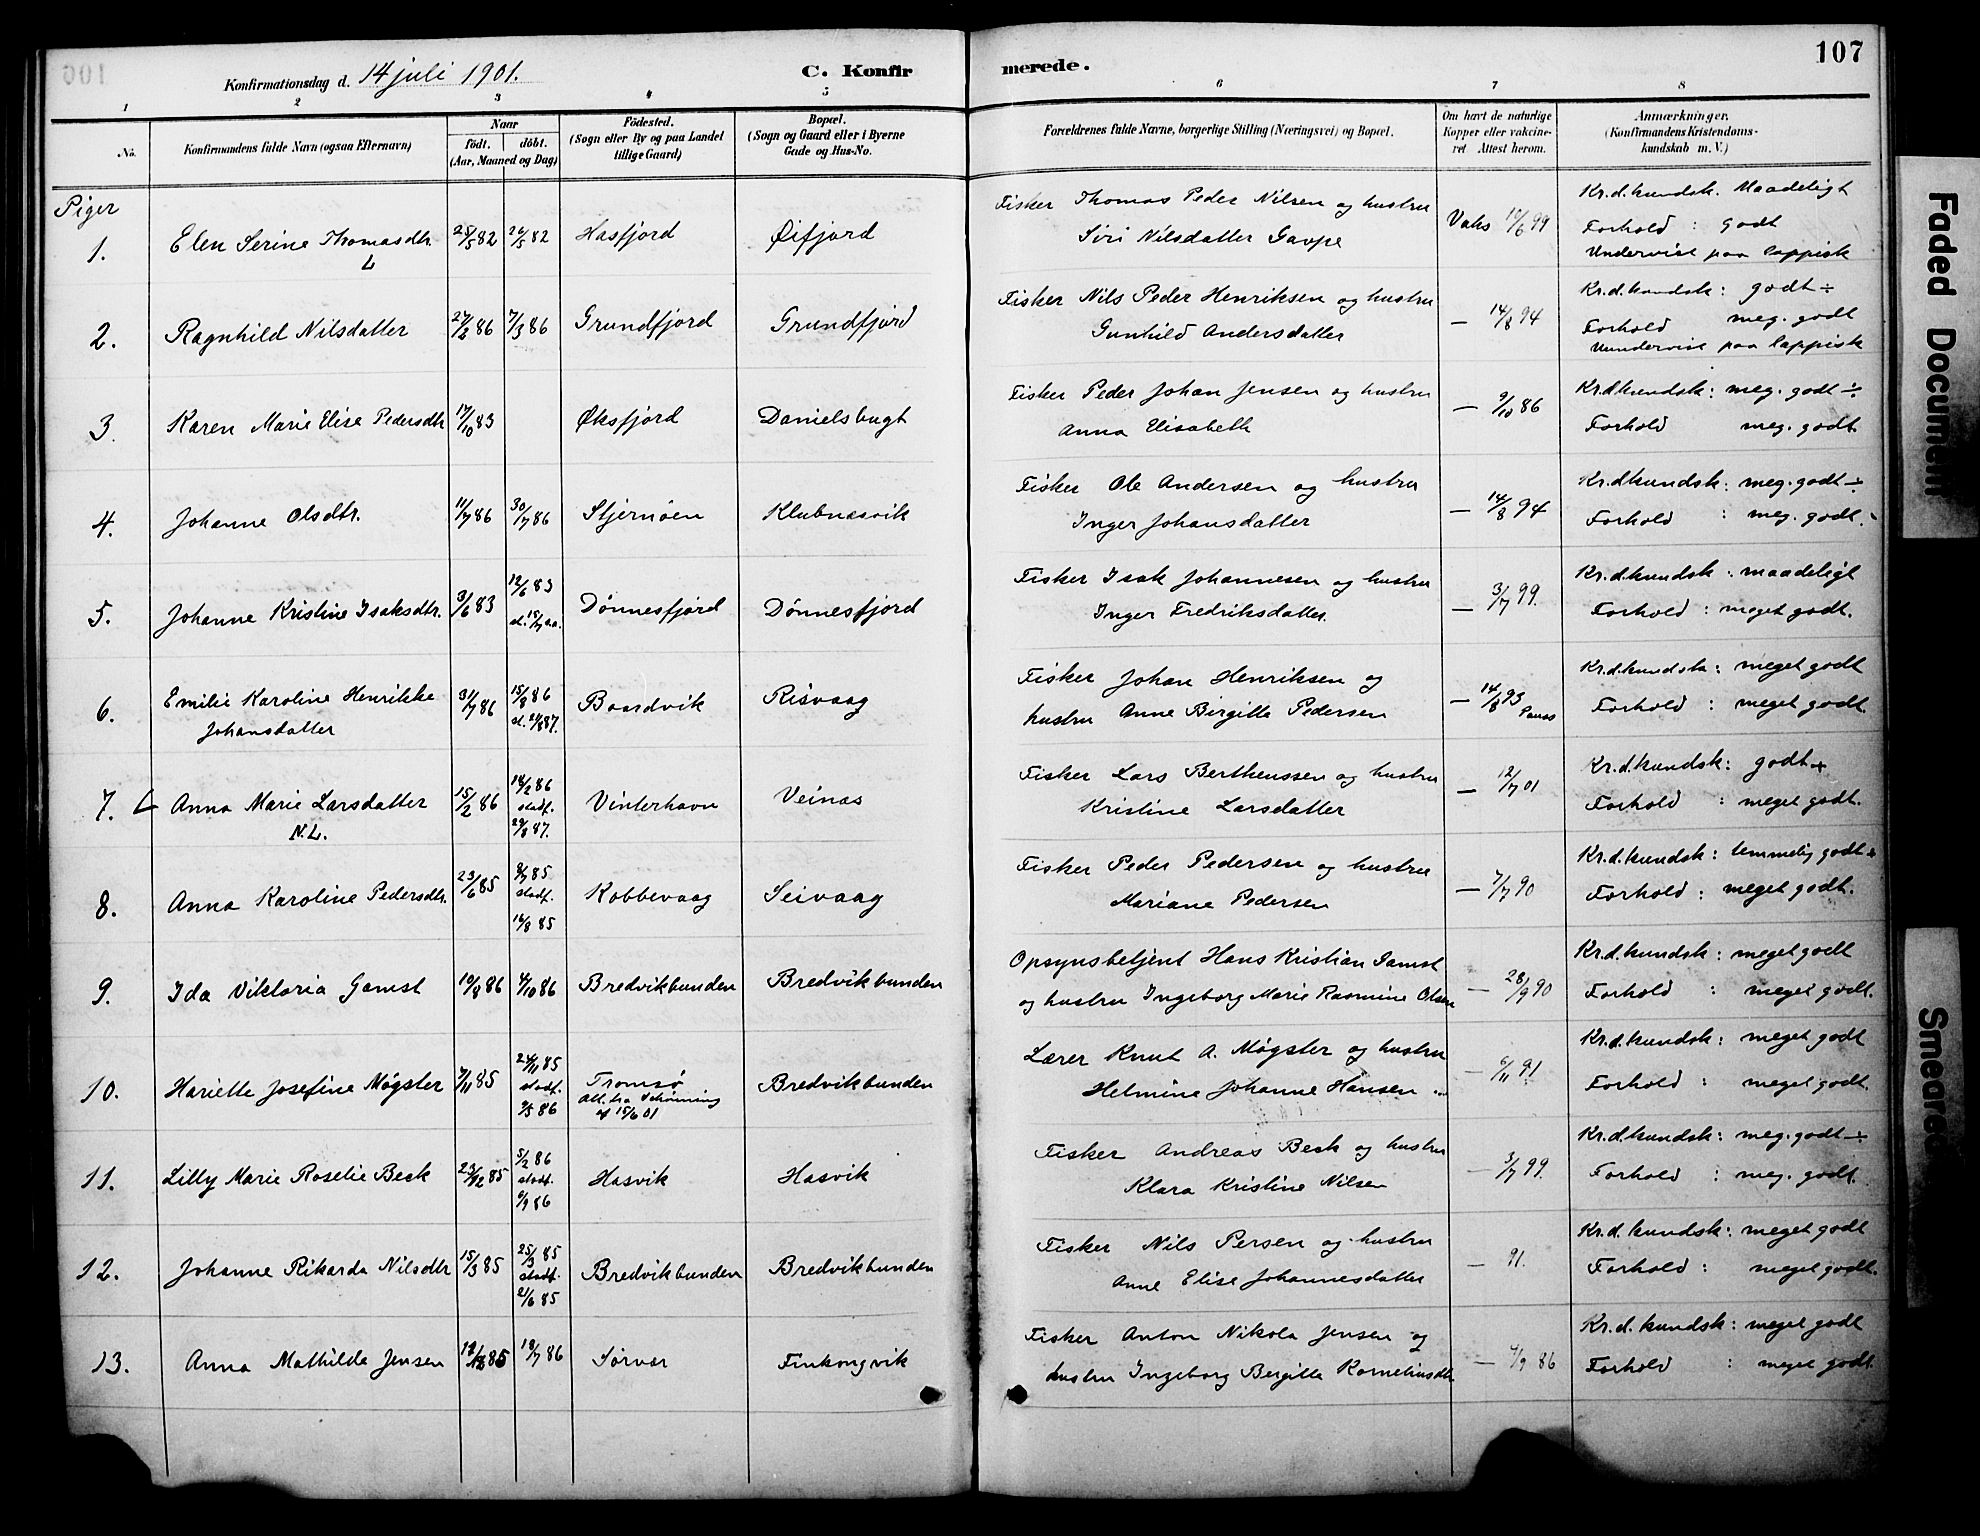 107
Konfirmationsdag d. 14 juli 1901.
C. Konfirmerede.
1 2 3 4 5 6 7 8
No.
Konfirmandens fulde Navn (ogsaa Efternavn)
Naar
født. døbt.
(Aar, Maaned og Dag)
Fødested.
(Sogn eller By og paa Landet
tillige Gaard)
Bopæl.
(Sogn og Gaard eller i Byerne
Gade og Hus-No.
Forældrenes fulde Navne, borgerlige Stilling (Næringsvei) og Bopæl.
Om havt de naturlige
Kopper eller vakcine-
ret Attest herom.
Anmærkninger.
(Konfirmandens Kristendoms-
kundskab m. V.)
Piger
1. Elen Serine Thomasdtr. 25/5 82 26/5 82 Hasfjord Øifjord
L
Fisker Thomas Peder Nilsen og hustru
Siri Nilsdatter Gaupe
Vaks 17/6 99
Kr.d.kundsk. Maadeligt
Forhold : godt
Undervist paa lappisk
2. Ragnhild Nilsdatter 27/2 86 7/3 86 Grundfjord Grundfjord
Fisker Nils Peder Henriksen og hustru
Gunhild Andersdatter
— 14/8 94
Kr.d.kundsk: godt ÷
Forhold meg. godt
Undervist paa lappisk
3. Karen Marie Elise Pedersdtr 17/10 83 Øksfjord Danielsbugt
Fisker Peder Johan Jensen og hustru
Anna Elisabeth
— 9/10 86
Kr.dkundsk: meg. godt ÷
Forhold meg. godt.
4. Johanne Olsdtr. 11/7 86 30/7 86 Stjernøen Klubnæsvik
Fisker Ole Andersen og hustru
Inger Johansdatter
— 14/8 94
Kr.dkundsk: meg. godt ÷
Forhold : meg. godt.
5. Johanne Kristine Isaksdtr. 3/6 83 12/6 83 Dønnesfjord Dønnesfjord
Fisker Isak Johannesen og hustru
Inger Fredriksdatter.
— 3/7 99.
Kr.d.kundsk: maadeligt
Forhold : meget godt.
6. Emilie Karoline Henrikke 31/7 86 15/8 86 Baardvik Risvaag
Johansdatter
Fisker Johan Henriksen og
hustru Anne Birgitte Pedersen
— 14/8 93
Kr.d.kundsk: meget godt
Forhold : meget godt.
7. L Anna Marie Larsdatter 15/2 86 18/2 86 Vinterhavn Veinæs
N.L. stadf.
29/8 87.
Fisker Lars Bertheussen og hustru
Kristine Larsdatter
— 12/7 01
Kr.d.kundsk: godt +
Forhold : meget godt.
8. Anna Karoline Pedersdtr. 23/6 85 9/7 85 Kobbevaag Seivaag
stadf.
16/8 85
Fisker Peder Pedersen og hustru
Mariane Pedersen
— 7/7 90
Kr.d.kundsk: temmelig godt +
Forhold : meget godt.
9. Ida Viktoria Gamst 19/8 86 4/10 86 Bredvikbunden Bredvikbunden
Opsynsbetjent Hans Kristian Gamst
og hustru Ingeborg Marie Rasmine Olsen
— 28/9 90
Kr.d.kundsk: meget godt
Forhold : meget godt.
10. Hariette Josefine Møgster 7/11 85 24/11 85 Tromsø Bredvikbunden
stadf. Att. fra Schønning
9/5 86 af 15/6 01
Lærer Knut A. Møgster og hustru
Helmine Johanne Hansen
— 6/11 91
Kr.d.kundsk: meget godt
Forhold : meget godt.
11. Lilly Marie Roselie Beck 23/12 85 5/2 86 Hasvik Hasvik
stadf.
6/9 86
Fisker Andreas Beck og hustru
Klara Kristine Nilsen
— 3/7 99.
Kr.d.kundsk: meg. godt ÷
Forhold : meg. godt.
12. Johanne Rikarda Nilsdtr 15/3 85 25/3 85 Bredvikbunden Bredvikbunden
stadf.
21/6 85
Fisker Nils Persen og hustru
Anne Elise Johannesdatter
— 91.
Kr.d.kundsk: meget godt
Forhold : meget godt.
13. Anna Mathilde Jensen 18/7 86 Sørvær Finkongvik
Fisker Anton Nikola Jensen og
hustru Ingeborg Bergitte Korneliusdtr
— 4/9 86
Kr.d.kundsk: meget godt
Forhold : meget godt.
Faded Document
Smeared